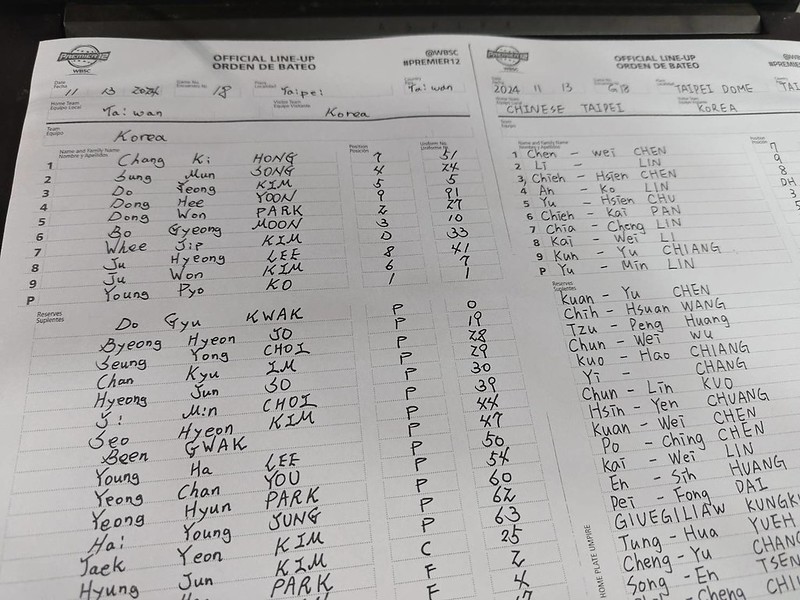 PREMIER12
WBSC
OFFICIAL LINE-UP
ORDEN DE BATEO
@WBSC
#PREMIER12
Date
Fecha
11 13 2024
18
Place
Localidad
Taipei
Taiwan
Home Team
Equipo Local
Taiwan
Visitor Team
Equipo Visitante
Korea
Team
Equipo
Korea
Name and Family Name
Nombre y Apellidos
Position
Posición
Uniform No.
1 Chang Ki HONG 7 51
2 Sung Mun SONG 4 24
3 Do Yeong KIM 5 5
4 Dong Hee YOON 9 91
5 Dong Won PARK 2 27
6 Bo Gyeong MOON 3 10
7 Whee Jip KIM D 33
8 Ju Hyeong LEE 8 41
9 Ju Won KIM 6 7
P Young Pyo KO 1 1
Reserves
Suplentes
Do Gyu KWAK P 0
Byeong Hyeon JO P 19
Seung Yong CHOI P 28
Chan Kyu IM P 29
Hyeong Jun SO P 30
Ji Min CHOI P 39
Seo Hyeon KIM P 44
Been GWAK P 47
Young Ha LEE P 50
Yeong Chan YOU P 54
Yeong Hyun PARK P 60
Hai Young JUNG P 62
Taek Yeon KIM P 63
Hyung Jun KIM C 25
PARK F 2
F 4
PREMIER12
WBSC
OFFICIAL LINE-UP
ORDEN DE BATEO
#PREMIER12
Date
Fecha
2024 11 13
G18
TAIPEI DOME
CHINESE TAIPEI
KOREA
Team
Equipo
Name and Family Name
Nombre y Apellidos
1 Chen - wei CHEN 7
2 Li - LIN 9
3 Chieh - Hsien CHEN 8
4 An - Ko LIN DH
5 Yu - Hsien CHU
6 Chieh - Kai PAN
7 Chia - Cheng LIN
8 Kai - Wei LI
9 Kun - Yu CHIANG
P Yu - Min LIN
Reserves
Suplentes
Kuan - Yu CHEN
Chih - Hsuan WANG
Tzu - Peng Huang
Chun - Wei WU
Kuo - Hao CHIANG
Yi - CHANG
Chun - Lin KUO
Hsin - Yen CHUANG
Kuan - Wei CHEN
Po - Ching CHEN
Kai - Wei LIN
En - Sih HUANG
Pei - Fong DAI
GIUEGILIAW
Tung - Hua YUEH
Cheng - Yu
Song - En
Cheng
HOME PLATE UMPIRE